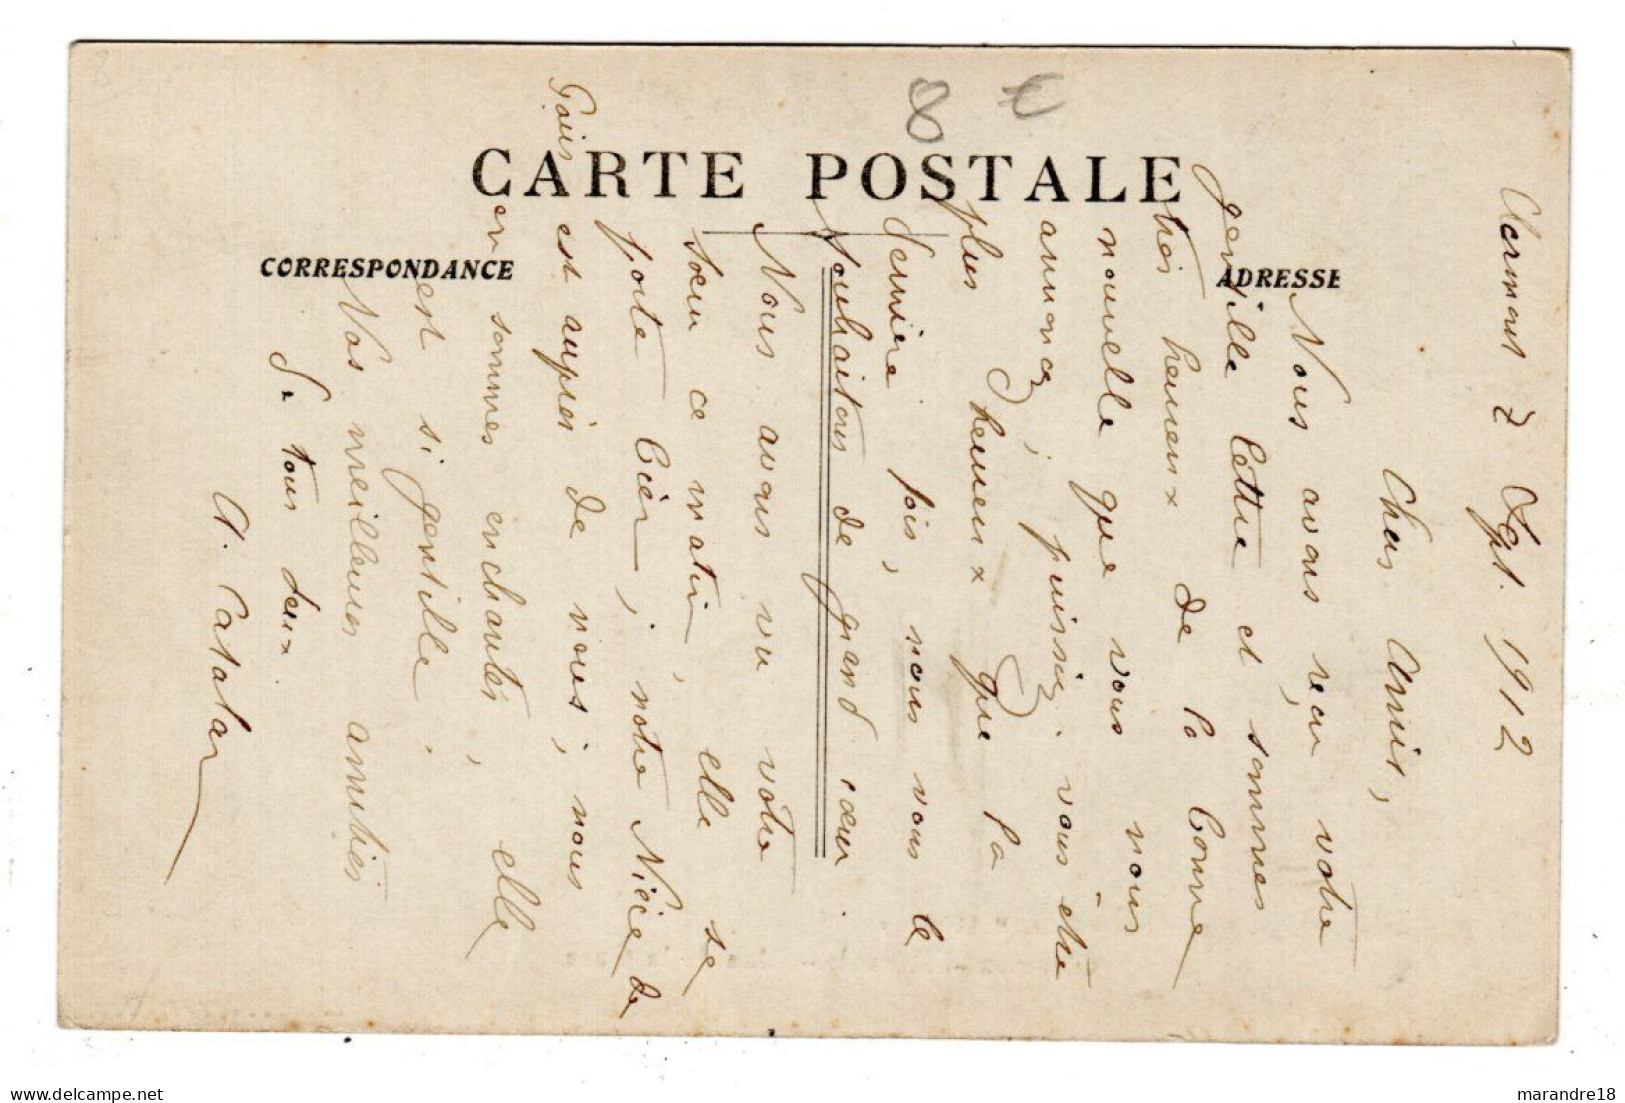 8 €
CARTE POSTALE
CORRESPONDANCE
ADRESSE
Clermont 7 Sept. 1912
Chers Amis,
Nous avons reçu votre
gentille lettre et sommes
très heureux de la bonne
nouvelle que vous nous
annoncez, puissiez vous être
plus heureux que la
dernière fois, nous vous le
souhaitons de grand cœur.
Nous avons vu votre
sœur ce matin, elle se
porte bien, notre Nièce de
Paris est auprès de nous, nous
en sommes enchantés, elle
est si gentille.
Nos meilleures amitiés
à tous deux
A. Catalan
marandre18